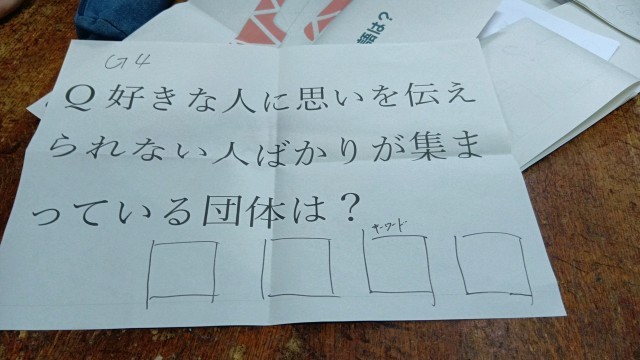 語は?
G4
Q 好きな人に思いを伝え
られない人ばかりが集ま
っている団体は?
キーワード